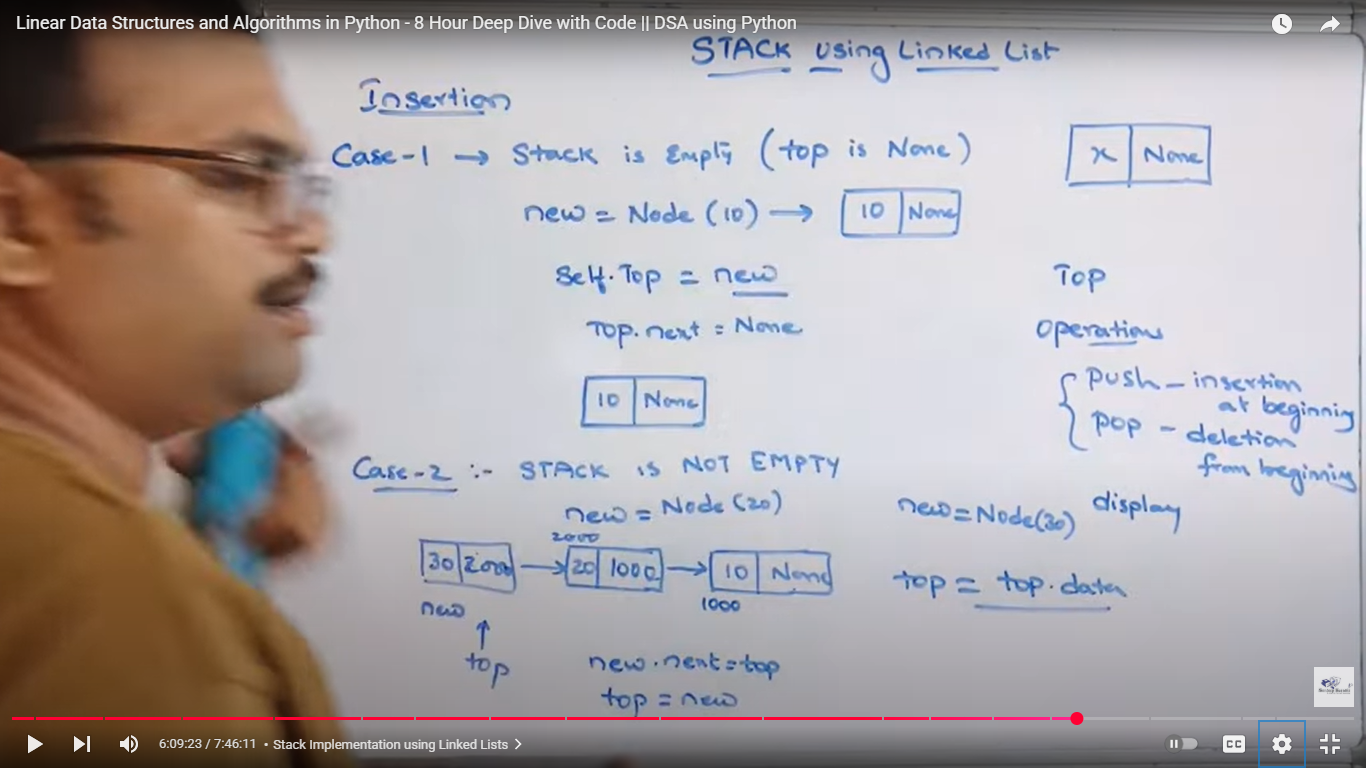 Linear Data Structures and Algorithms in Python - 8 Hour Deep Dive with Code || DSA using Python
STACK using Linked List
Insertion
Case-1 → Stack is Empty (top is None)
x None
new = Node (10) → 10 None
Self.Top = new
Top.next = None
10 None
Top
Operations
push - insertion
at beginning
pop - deletion
from beginning
display
Case-2 :- STACK is NOT EMPTY
new = Node (20)
new = Node(30)
2000
30 2000 → 20 1000 → 10 None
1000
new
↑
top
top = top.data
new.next = top
top = new
6:09:23 / 7:46:11 • Stack Implementation using Linked Lists >
CC